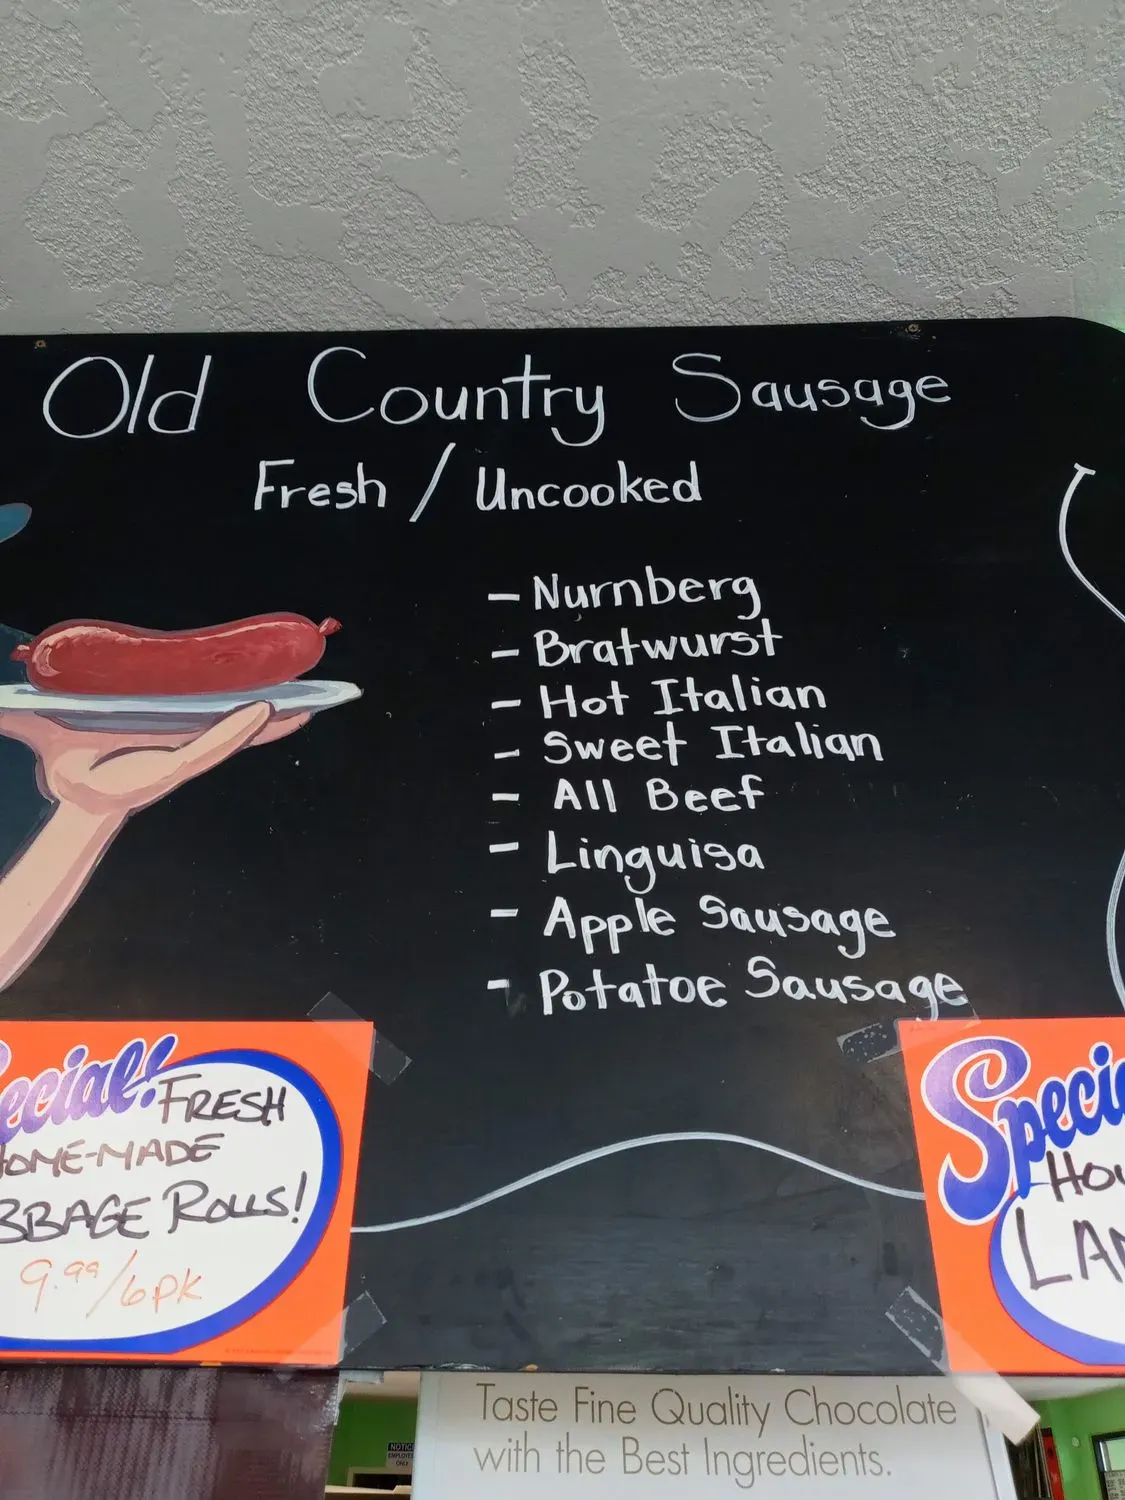 Old Country Sausage
Fresh / Uncooked
- Nurnberg
- Bratwurst
- Hot Italian
- Sweet Italian
- All Beef
- Linguisa
- Apple Sausage
- Potatoe Sausage
FRESH
ROLLS!
9.99/6PK
Taste Fine Quality Chocolate
with the Best Ingredients.
NOTICE
EMPLOYEES
ONLY